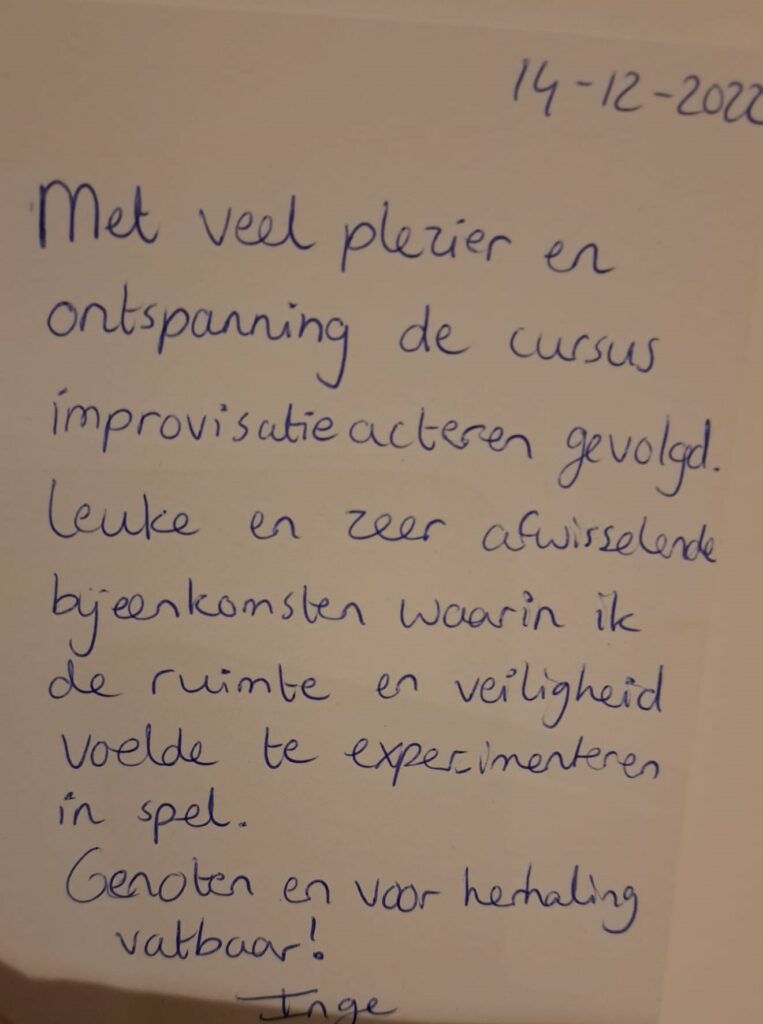 14-12-2022
Met veel plezier en
ontspanning de cursus
improvisatieacteren gevolgd.
Leuke en zeer afwisselende
bijeenkomsten waarin ik
de ruimte en veiligheid
voelde te experimenteren
in spel.
Genoten en voor herhaling
vatbaar!
Inge